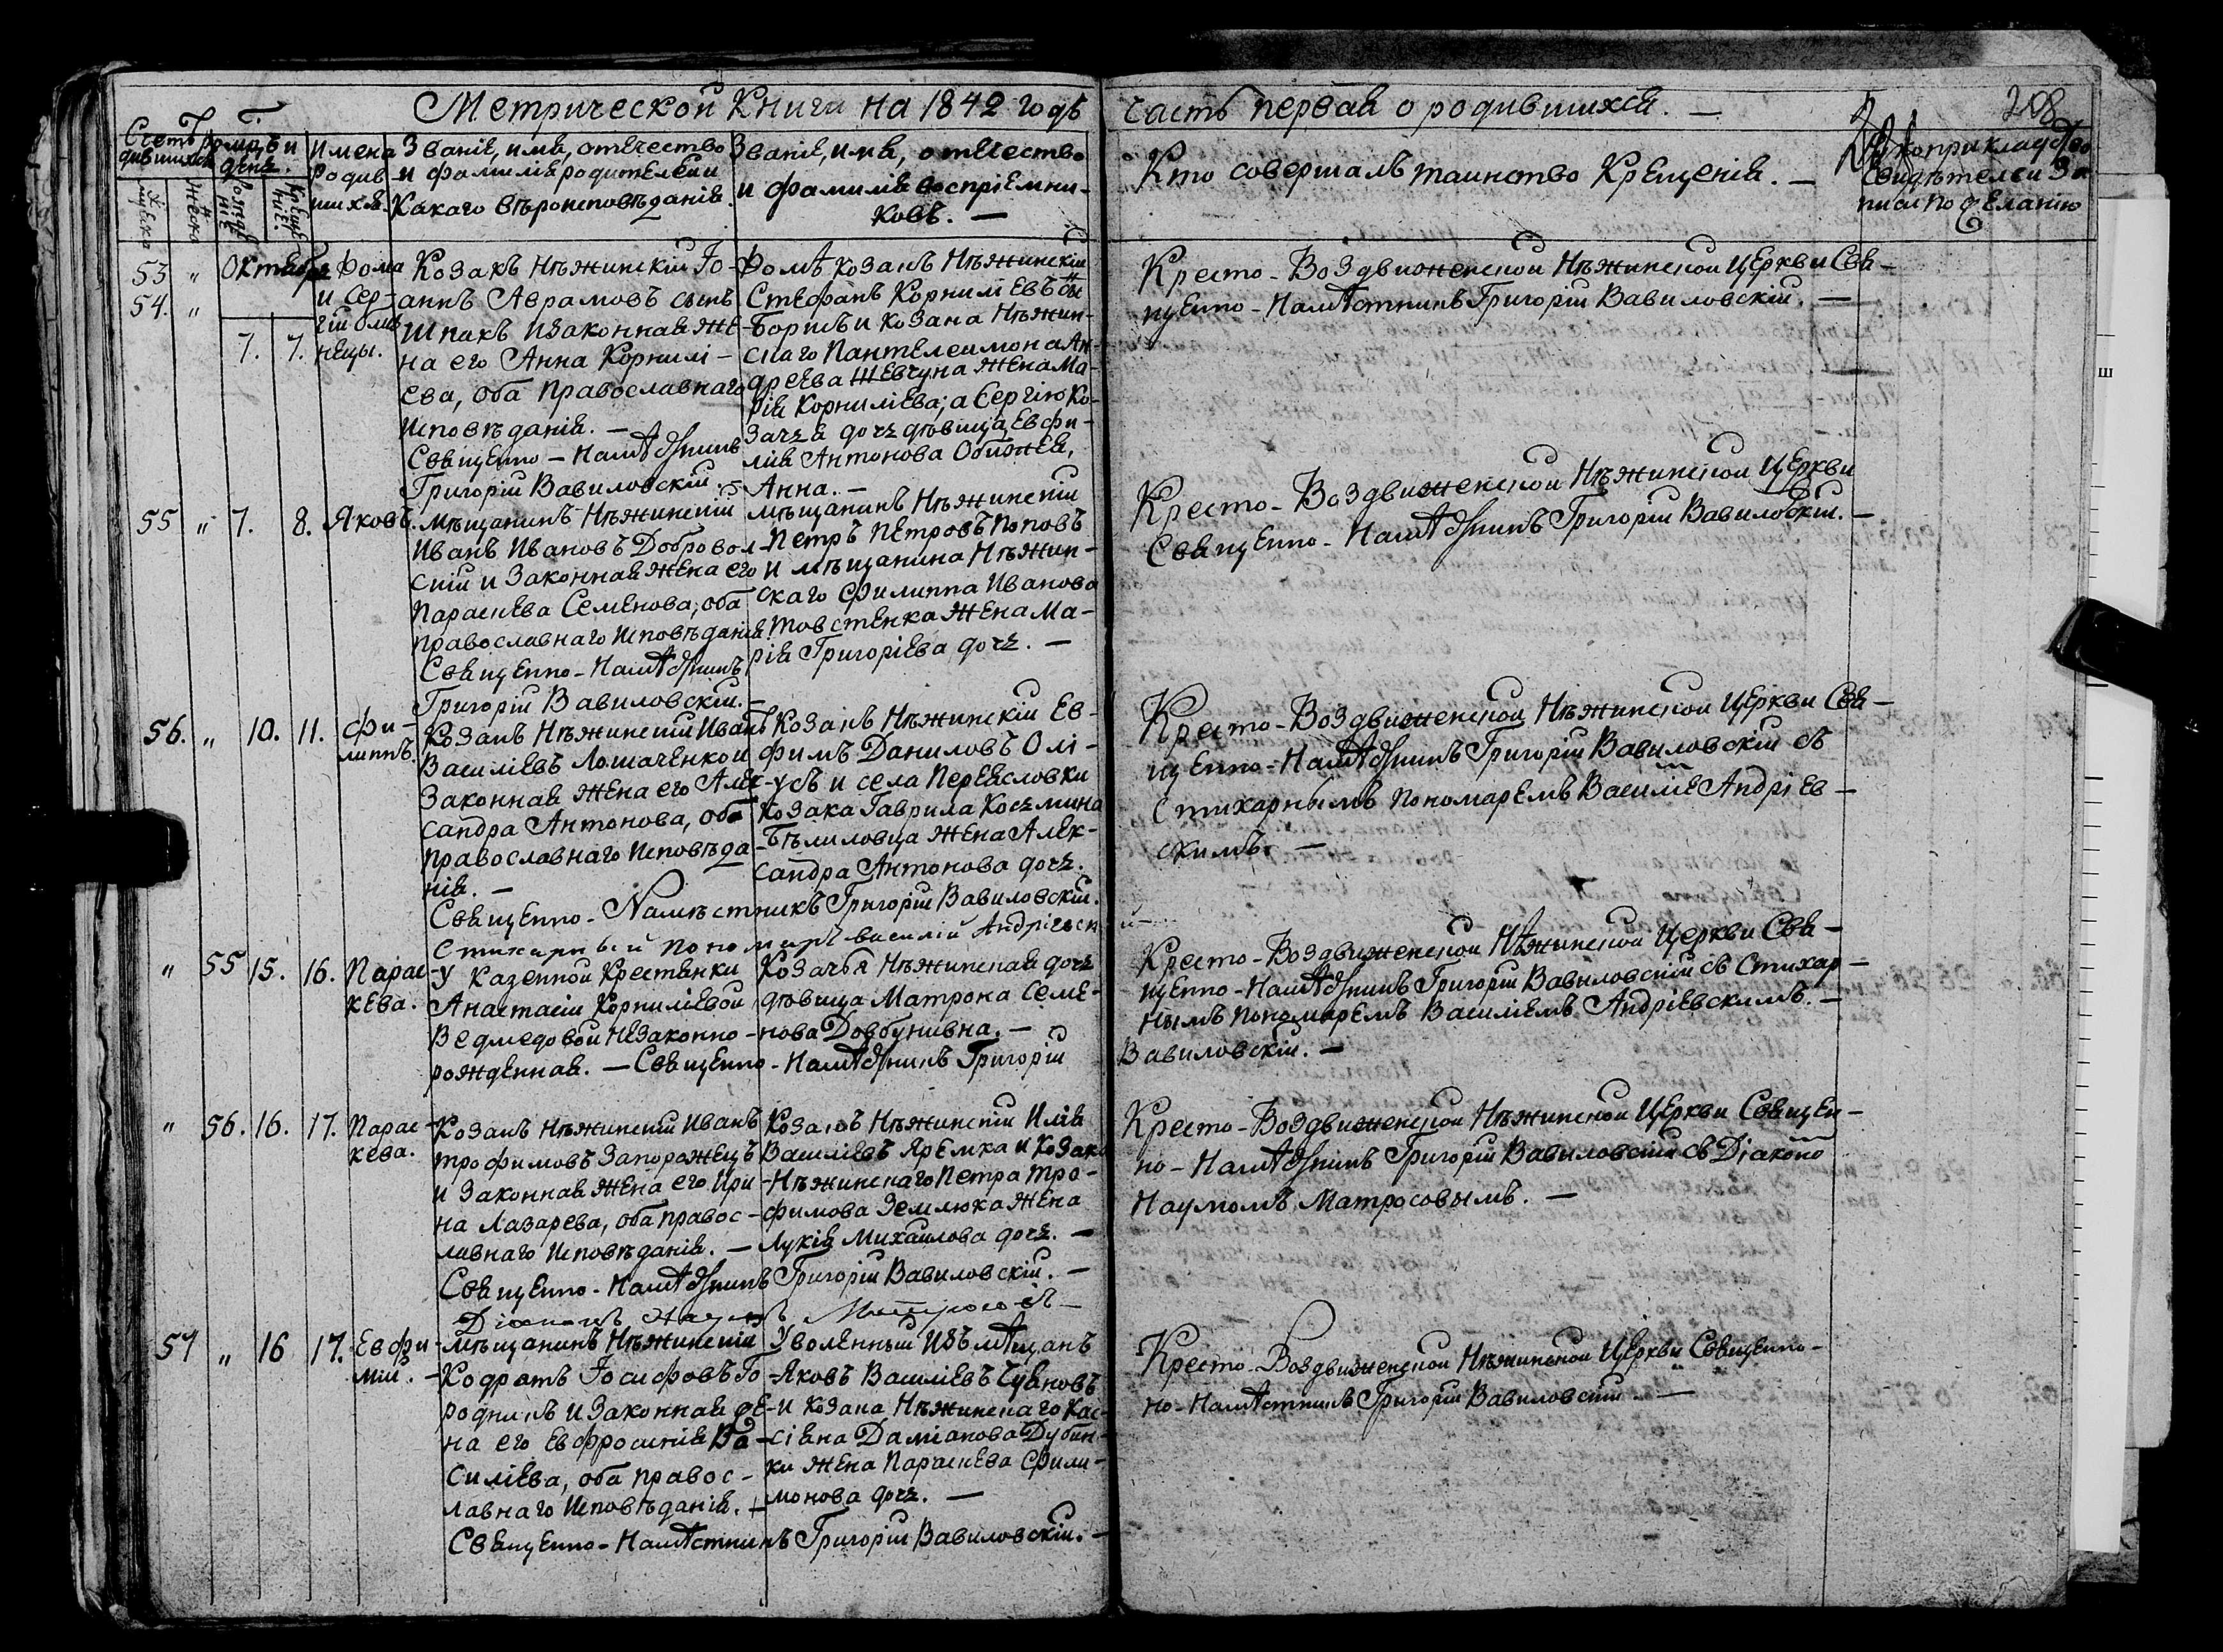 Метрической Книги на 1842 годъ часть первая о родившихся. —
208
Счетъ родившихся
Мужеска
Женска
Мѣсяцъ и день.
Рожденіе
Крещеніе.
Имена родившихся.
Званіе, имя, отечество
и фамилія родителей и
Какаго вѣроисповѣданія.
Званіе, имя, отечество
и фамилія воспріемни-
ковъ. —
Кто совершалъ таинство Крещенія. —
Рукоприкладство
свидѣтелей За
писи по желанію
53 „
54. „
Октября
7. 7.
Фома
и Сер-
гій близ
нецы.
Козакъ Нѣжинскій Іо-
аннъ Аврамовъ сынъ
Шпакъ и законная же-
на его Анна Корнилі-
ева, оба православнаго
исповѣданія. —
Священно-Намѣстникъ
Григорій Вавиловскій. —
Фомѣ козакъ Нѣжинскій
Стефанъ Корниліевъ
Борщъ и козака Нѣжин-
скаго Пантелеимона Ан-
дреева Шевчука жена Ма-
рія Корниліева; а Сергію Ко-
зачья дочь дѣвица Евфи-
мія Антонова
Анна. —
Кресто-Воздвиженской Нѣжинской Церкви Свя-
щенно-Намѣстникъ Григорій Вавиловскій. —
55 „ 7. 8. Яковъ.
Мѣщанинъ Нѣжинскій
Иванъ Ивановъ Доброволь-
скій и Законная жена его
Параскева Семенова, оба
православнаго исповѣданія.
Священно-Намѣстникъ
Григорій Вавиловскій. —
Мѣщанинъ Нѣжинскій
Петръ Петровъ Поповъ
и мѣщанина Нѣжин-
скаго Филиппа Иванова
Товстенка жена Ма-
рія Григоріева дочь. —
Кресто-Воздвиженской Нѣжинской Церкви
Священно-Намѣстникъ Григорій Вавиловскій. —
56. „ 10. 11. Фи-
липпъ.
Козакъ Нѣжинскій Иванъ
Василіевъ Лошаченко и
Законная жена его Алек-
сандра Антонова, оба
православнаго исповѣда-
нія. —
Священно-Намѣстникъ Григорій Вавиловскій.
Стихарный пономарь Василій Андріевскій
Козакъ Нѣжинскій Ев-
фимъ Даниловъ Олі-
усъ и села Переясловки
козака Гаврила Косьмина
Бѣлиловца жена Алек-
сандра Антонова дочь.
Кресто-Воздвиженской Нѣжинской Церкви Свя-
щенно-Намѣстникъ Григорій Вавиловскій съ
Стихарнымъ пономаремъ Василіемъ Андріев-
скимъ. —
„ 55 15. 16. Парас-
кева.
У казенной Крестянки
Анастасіи Корниліевой
Ведмедовой незаконно-
рожденная. —
Козачья Нѣжинская дочь
дѣвица Матрона Семе-
нова Довбунивна. —
Священно-Намѣстникъ Григорій
Вавиловскій. —
Кресто-Воздвиженской Нѣжинской Церкви Свя-
щенно-Намѣстникъ Григорій Вавиловскій съ Стихар-
нымъ пономаремъ Василіемъ Андріевскимъ. —
„ 56. 16. 17. Парас-
кева.
Козакъ Нѣжинскій Иванъ
Трофимовъ Запорожецъ
и Законная жена его Ири-
на Лазарева, оба правос-
лавнаго исповѣданія. —
Козакъ Нѣжинскій Илія
Василіевъ Яремка и Козака
Нѣжинскаго Петра Тро-
фимова Землюка жена
Лукія Михаилова дочь. —
Священно-Намѣстникъ Григорій Вавиловскій. —
Діаконъ Наумъ Матросовъ —
Кресто-Воздвиженской Нѣжинской Церкви Священ-
но-Намѣстникъ Григорій Вавиловскій съ Діакономъ
Наумомъ Матросовымъ. —
57 „ 16 17. Евфи-
мій.
Мѣщанинъ Нѣжинскій
Кодратъ Іосифовъ Го-
родникъ и Законная же-
на его Евфросинія Ва-
силіева, оба правос-
лавнаго исповѣданія. —
Уволенный изъ мѣщанъ
Яковъ Василіевъ Чуяновъ
и козака Нѣжинскаго Кас-
сіяна Даміанова Дубин-
ки жена Параскева Фили-
монова дочь. —
Священно-Намѣстникъ Григорій Вавиловскій. —
Кресто-Воздвиженской Нѣжинской Церкви Священно-
но-Намѣстникъ Григорій Вавиловскій. —